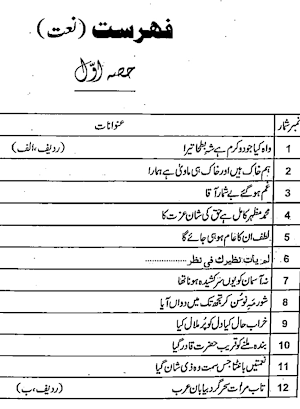 فہرست (نعت)
حصہ اوّل
نمبر شمار عنوانات
1 واہ کیا جود و کرم ہے شہ بطحا تیرا (ردیف، الف)
2 ہم خاک ہیں اور خاک ہی ماویٰ ہے ہمارا
3 غم ہو گئے بے شمار آقا
4 محمد مظہر کامل ہے حق کی شان عزت کا
5 لطف ان کا عام ہو ہی جائے گا
6 لم یات نظیرک فی نظر ...............
7 نہ آسمان کو یوں سر کشیدہ ہونا تھا
8 شور مہ نو سن کر تجھ تک میں دواں آیا
9 خراب حال کیا دل کو پر ملال کیا
10 بندہ ملنے کو قریب حضرت قادر گیا
11 نعمتیں بانٹتا جس سمت وہ ذی شان گیا
12 تاب مرات سحر گرد بیابان عرب (ردیف، ب)